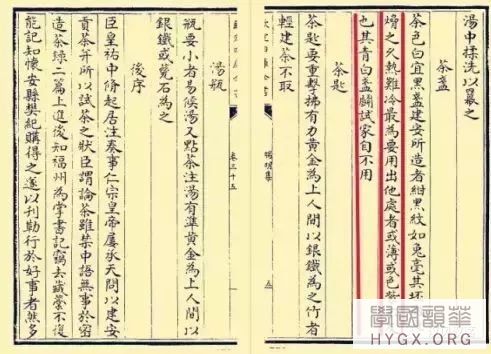 湯中揉洗以羃之
茶盞
茶色白宜黑盞建安所造者紺黑紋如兔毫其坯
熁之久熱難冷最為要用出他處者或薄或色紫
也其青白盞鬭試家自不用
茶匙
茶匙要重擊拂有力黃金為上人間以銀鐵為之竹者
輕建茶不取
端明集
卷三十五
湯瓶
瓶要小者易候湯又點茶注湯有準黃金為上人間以
銀鐵或甆石為之
後序
臣皇祐中脩起居注奏事仁宗皇帝屢承天問以建安
貢茶并所以試茶之狀臣謂論茶雖禁中語無事於密
造茶錄二篇上進後知福州為掌書記竊去藏藁不復
能記知懷安縣樊紀購得之遂以刊勒行於好事者然多
學國韻華
HYGX.ORG